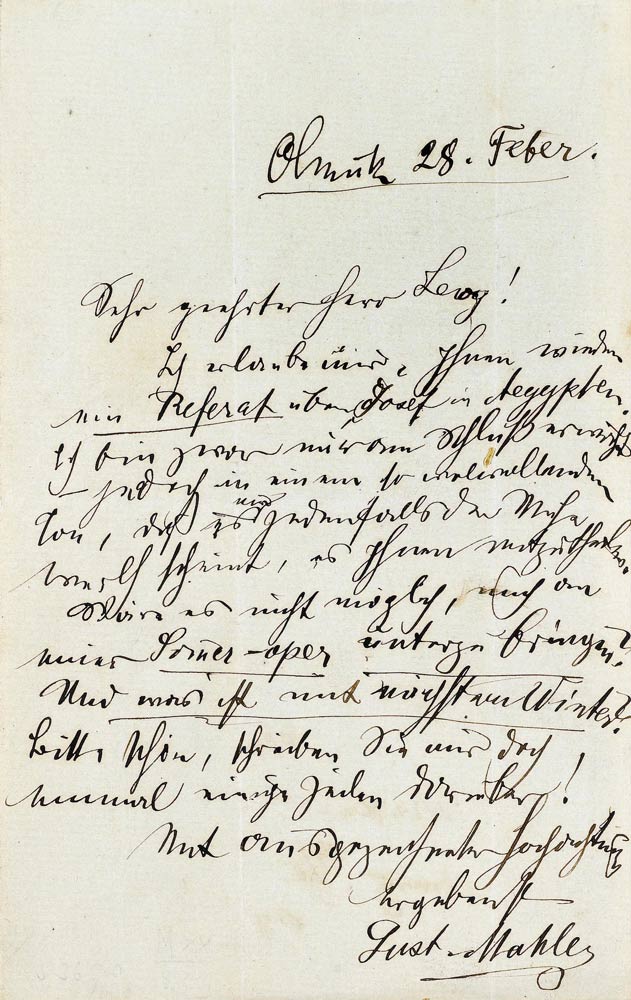 Olmütz 28. Feber.
Sehr geehrter Herr Levy!
Ich erlaube mir, Ihnen wieder
ein Referat über Josef in Aegypten.
Ich bin zwar nur am Schluß erwähnt
– jedoch in einem so wolwollenden
Ton, daß es mir jedenfalls der Mühe
werth scheint, es Ihnen mitzutheilen.
Wäre es nicht möglich, mich an
einer Som̄er-oper unterzubringen?
Und was ist mit nächstem Winter?
Bitte schön, schreiben Sie mir doch
einmal einige Zeilen darüber!
Mit ausgezeichneter Hochachtung
ergebenst
Gust. Mahler